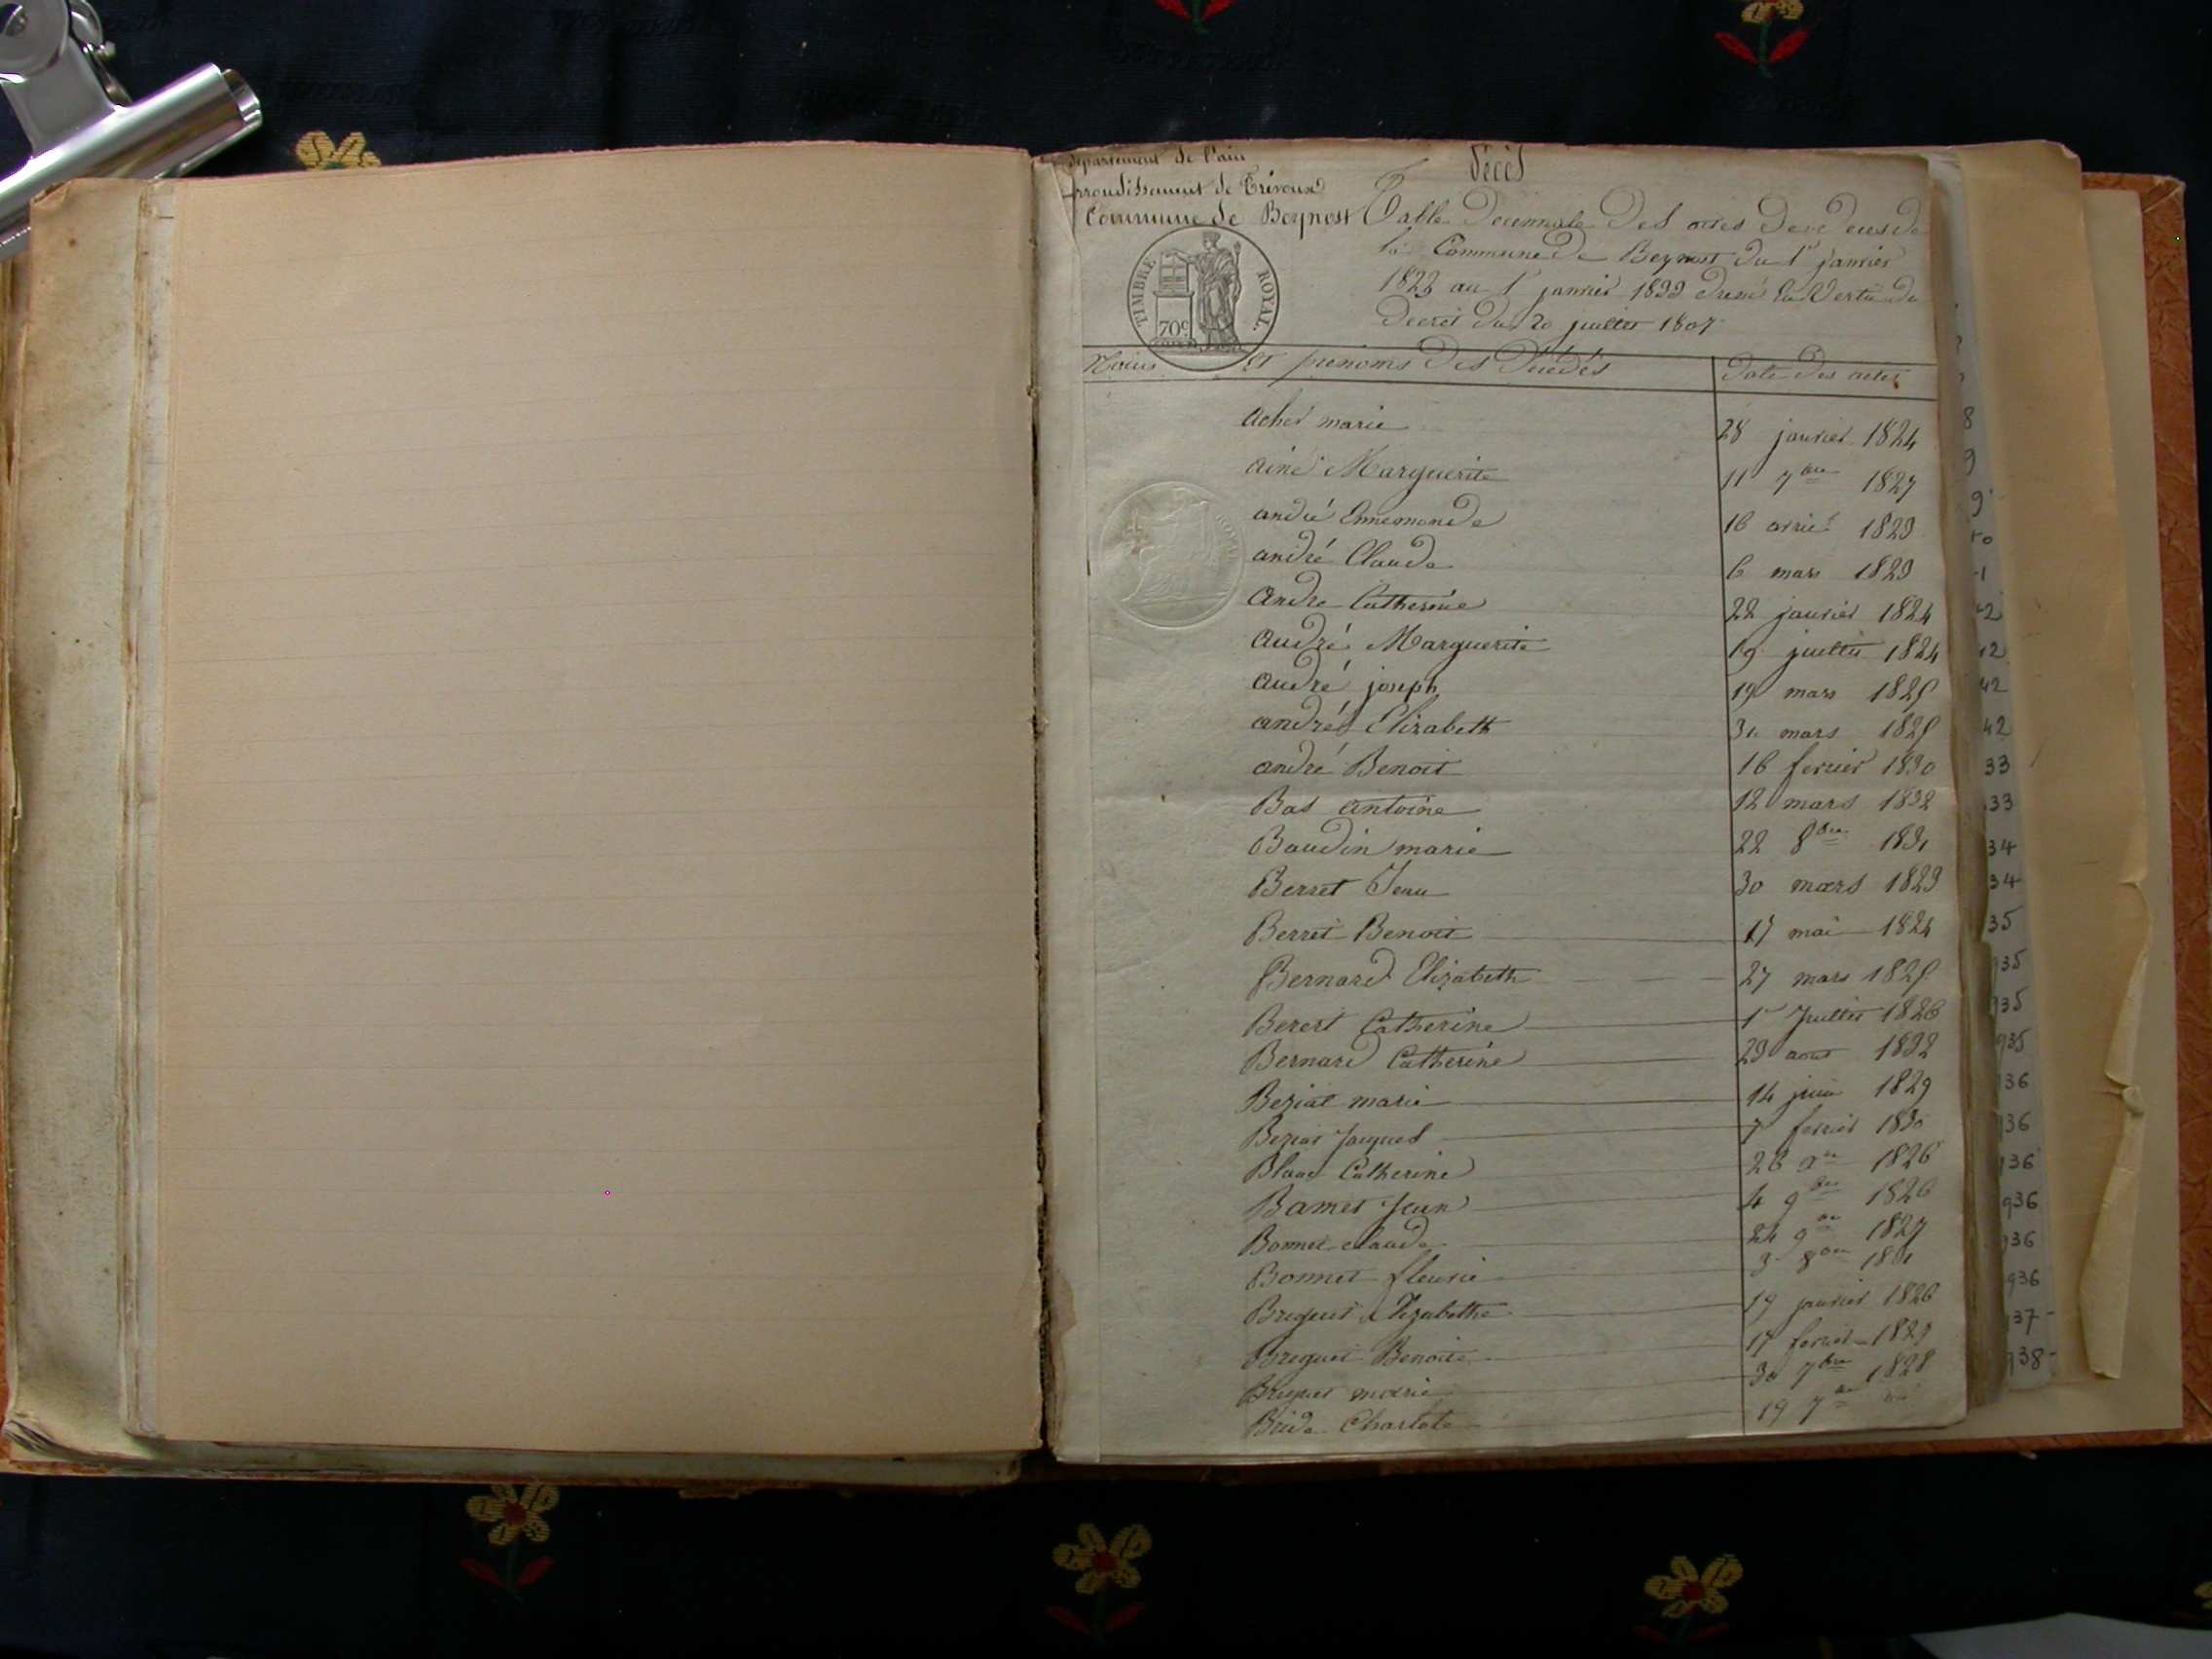 Décès
Département de l'ain
arrondissement de Trévoux
Commune de Beynost
Table Decennale Des actes De Deces De
la Commune De Beynost Du 1er janvier
1823 au 1er janvier 1833 dressé En Vertu du
Decret du 20 juillet 1807
TIMBRE ROYAL.
70c
Noms Et prénoms Des Décédés Date Des actes
achet marie 28 janvier 1824
ainé Marguerite 11 7bre 1827
andré Ennemonde 16 avril 1823
andré Claude 6 mars 1823
andré Catherine 22 janvier 1824
andré Marguerite 19 juillet 1824
andré joseph 19 mars 1825
andré Elizabeth 31 mars 1825
andré Benoit 16 fevrier 1830
Bas antoine 12 mars 1832
Baudin marie 22 8bre 1831
Berret Jean 30 mars 1823
Berret Benoit 17 mai 1824
Bernard Elizabeth 27 mars 1825
Beret Catherine 1er Juillet 1826
Bernard Catherine 23 aout 1832
Beziat marie 14 juin 1829
Beziat Jacques 7 fevrier 1830
Blanc Catherine 26 1826
Bamet Jean 4 9bre 1826
Bonnet claude 24 9bre 1827
Bonnet fleurie 3 8bre 1831
Breguet Elizabethe 19 janvier 1826
Breguet Benoite 17 fevrier 1827
Breguet marie 30 7bre 1828
Bride Charlote 19 7bre
8
9
9
42
42
42
42
33
33
34
34
35
935
935
935
936
936
936
936
936
936
937
938